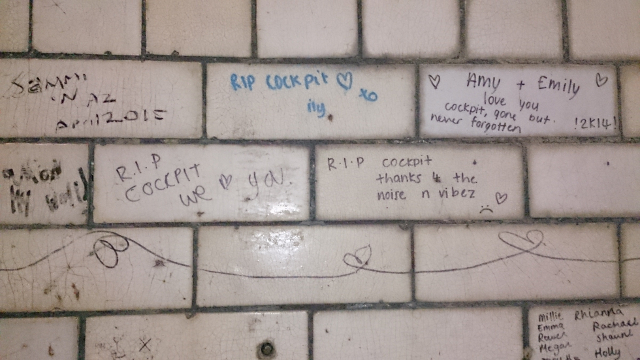 SAMMI
APRIL 2015
RIP COCKPIT ♡ xo
ily
♡ Amy + Emily ♡
love you
cockpit, gone but
never forgotten !2K14!
R.I.P
COCKPIT
WE ♡ YOU
R.I.P cockpit
thanks 4 the
noise n vibez
millie Rhianna
Emma Rachael
Megan
Holly